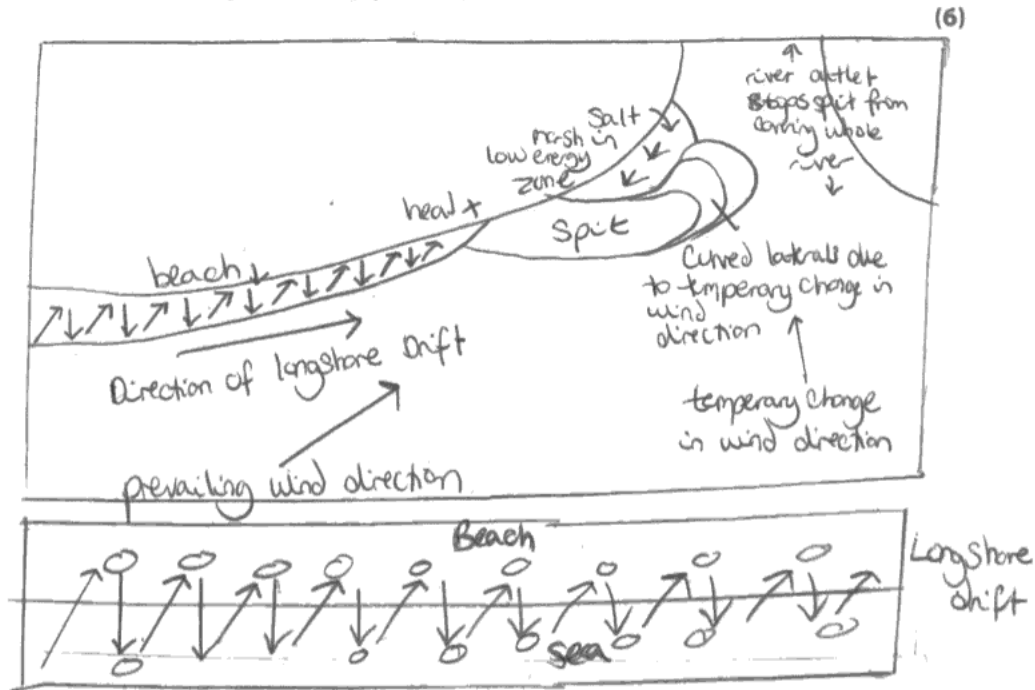 (6)
river outlet
stops spit from
coming whole
river
Salt
marsh in
low energy
zone
head
Spit
beach
Curved laterals due
to temperary change in
wind
direction
Direction of longshore Drift
temperary change
in wind direction
prevailing wind direction
Beach
Longshore
drift
sea